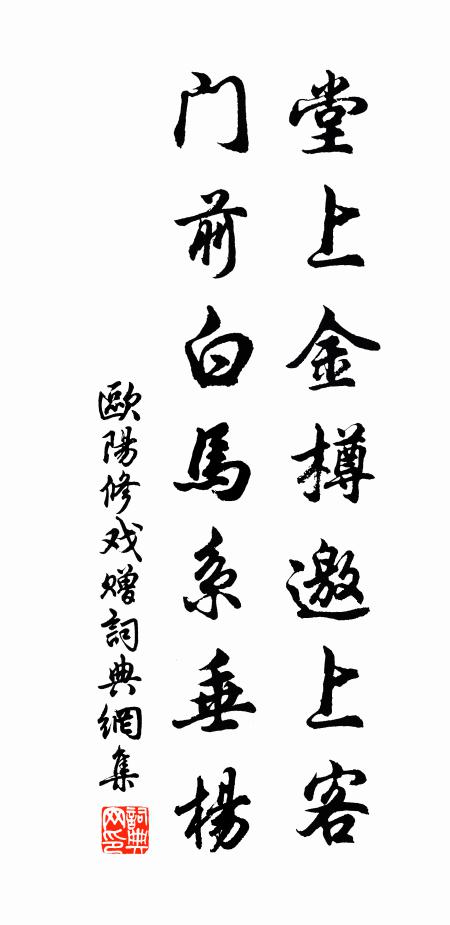 堂上金樽邀上客
门前白馬系垂楊
歐陽修戏赠詞典網集
詞典网印